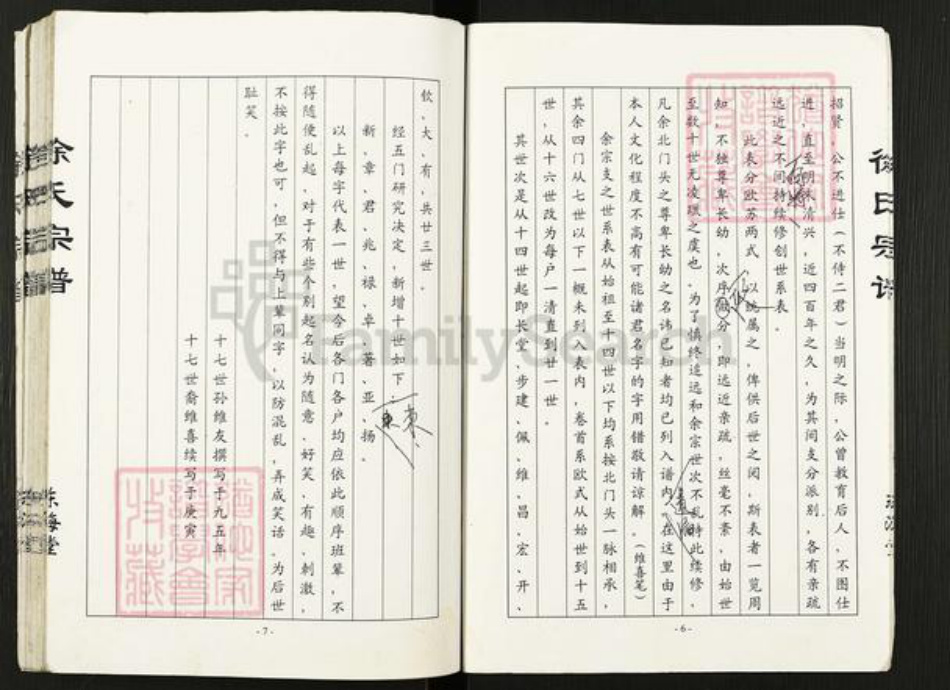 招贤，公不进仕（不侍二君）当明之际，公曾教育后人，不图仕
进，直至明末清兴，近四百年之久，为其间支分派别，各有亲疏
远近之不同持续修创世系表．
此表分欧苏两式，以统属之，俾供后世之阅，斯表者一览周
知，不独尊卑长幼，次序微分，即远近亲疏，丝毫不紊，由始世
至数十世无凌躐之虞也，为了慎终追远和余宗世次不乱特此续修，
凡余北门头之尊卑长幼之名讳已知者均已列入谱内，在这里由于
本人文化程度不高有可能诸君名字的字用错敬请谅解．（维喜笔）
余宗支之世系表从始祖至十四世以下均系按北门头一脉相承，
其余四门从七世以下一概未列入表内，卷首系欧式从始世到十五
世，从十六世改为每户一清直到廿一世．
其世次是从十四世起即长堂、步建、佩、维、昌、宏、开、
-6-
钦、大、有，共廿三世．
经五门研究决定，新增十世如下：
新、章、君、兆、禄、卓、著、亚、扬。
东
以上每字代表一世，望今后各门各户均应依此顺序班辈，不
得随便乱起，对于有些个别起名认为随意、好笑、有趣、刺激，
不按此字也可，但不得与上辈同字，以防混乱，弄成笑话，为后世
耻笑．
十七世孙维友撰写于九五年
十七世裔维喜续写于庚寅
-7-
徐氏宗谱
东海堂
FamilySearch